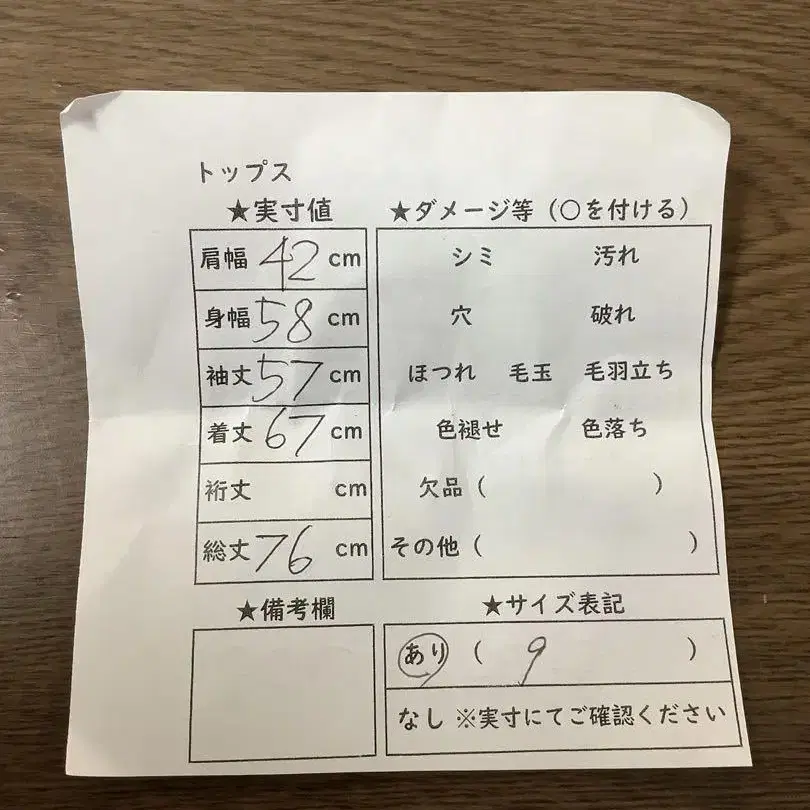 トップス
★実寸値
肩幅 42 cm
身幅 58 cm
袖丈 57 cm
着丈 67 cm
裄丈 cm
総丈 76 cm
★ダメージ等（○を付ける）
シミ 汚れ
穴 破れ
ほつれ 毛玉 毛羽立ち
色褪せ 色落ち
欠品（ ）
その他（ ）
★備考欄
★サイズ表記
あり（ 9 ）
なし ※実寸にてご確認ください